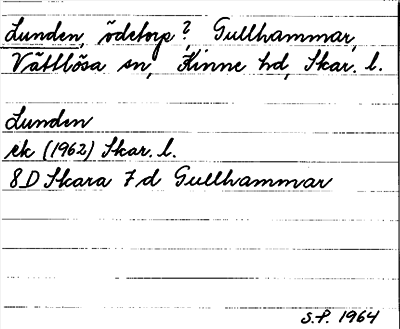 Lunden, ödetorp? Gullhammar,
Vättlösa sn, Kinne hd, Skar. l.
Lunden
ek (1962) Skar. l.
8D Skara 7d Gullhammar
S.P. 1964